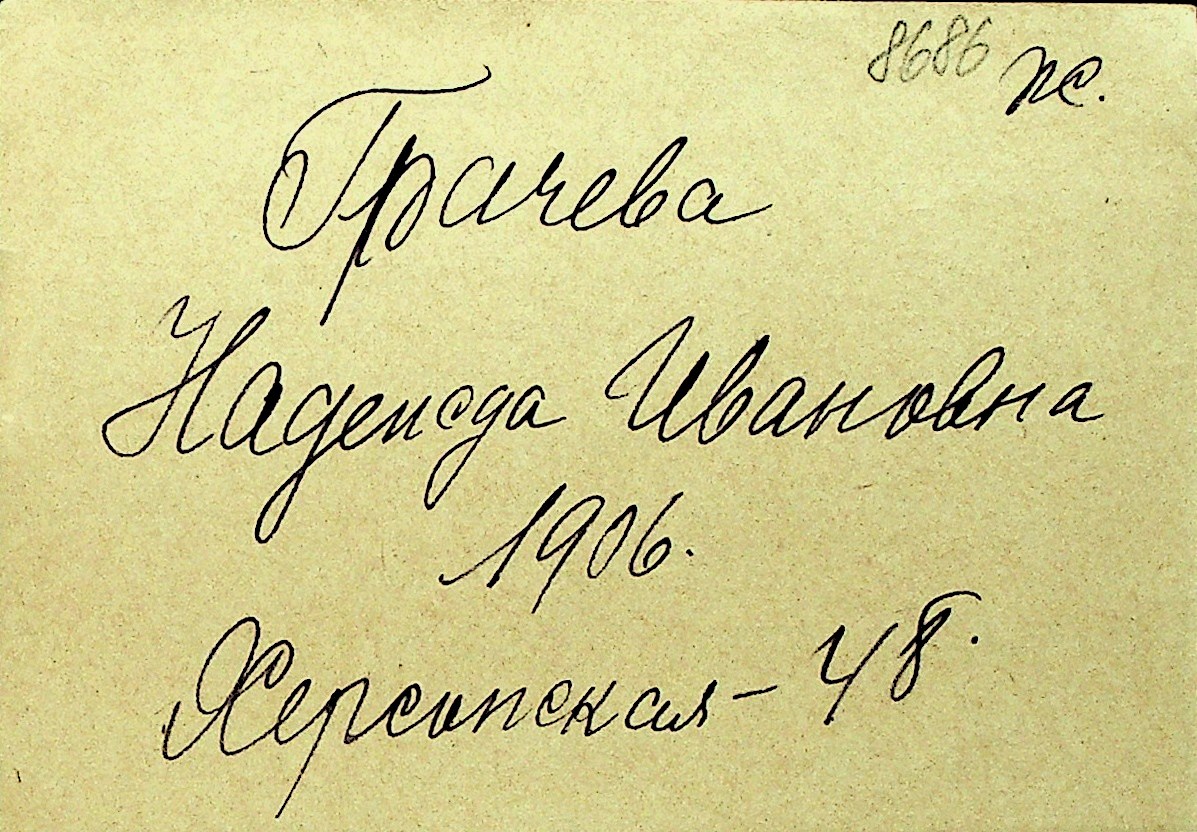 8686 ж.
Грачева
Надежда Ивановна
1906.
Херсонская - 48.